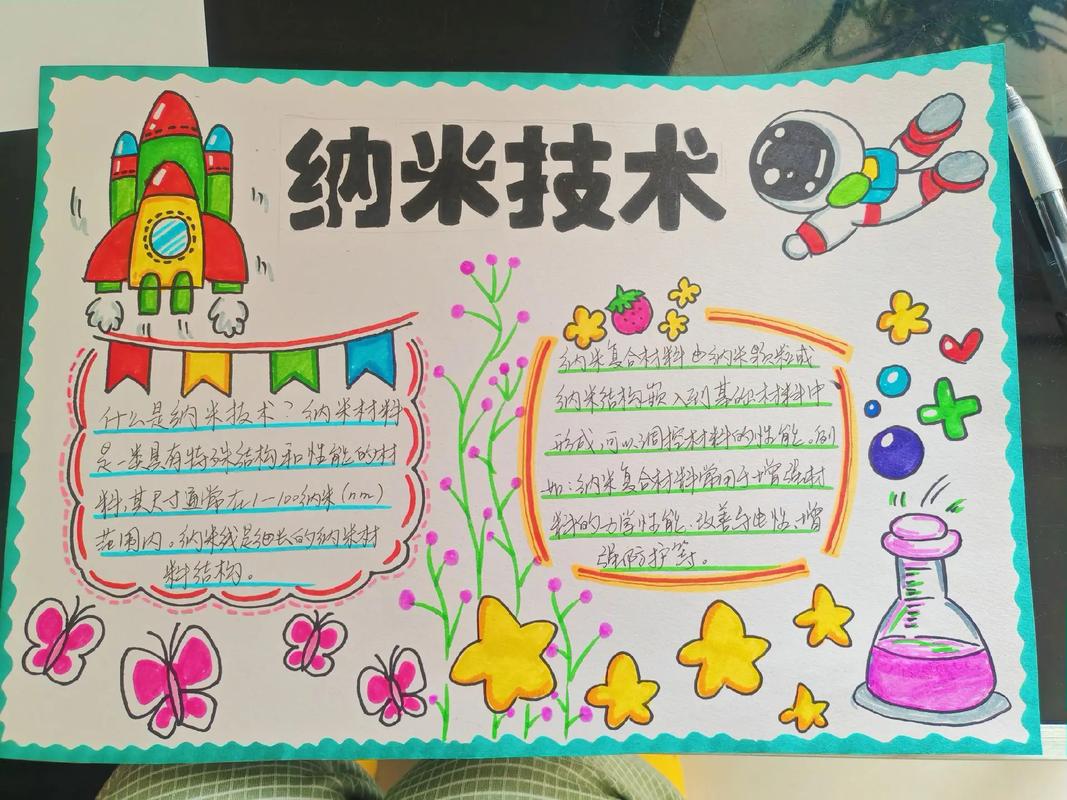 纳米技术
什么是纳米技术？纳米材料
是一类具有特殊结构和性能的材
料,其尺寸通常在1-100纳米(nm)
范围内。纳米线是细长的纳米材
料结构。
纳米复合材料由纳米颗粒或
纳米结构嵌入到基础材料中
形成,可以调控材料的性能。例
如:纳米复合材料常用于增强材
料的力学性能、改善导电性、增
强防护等。